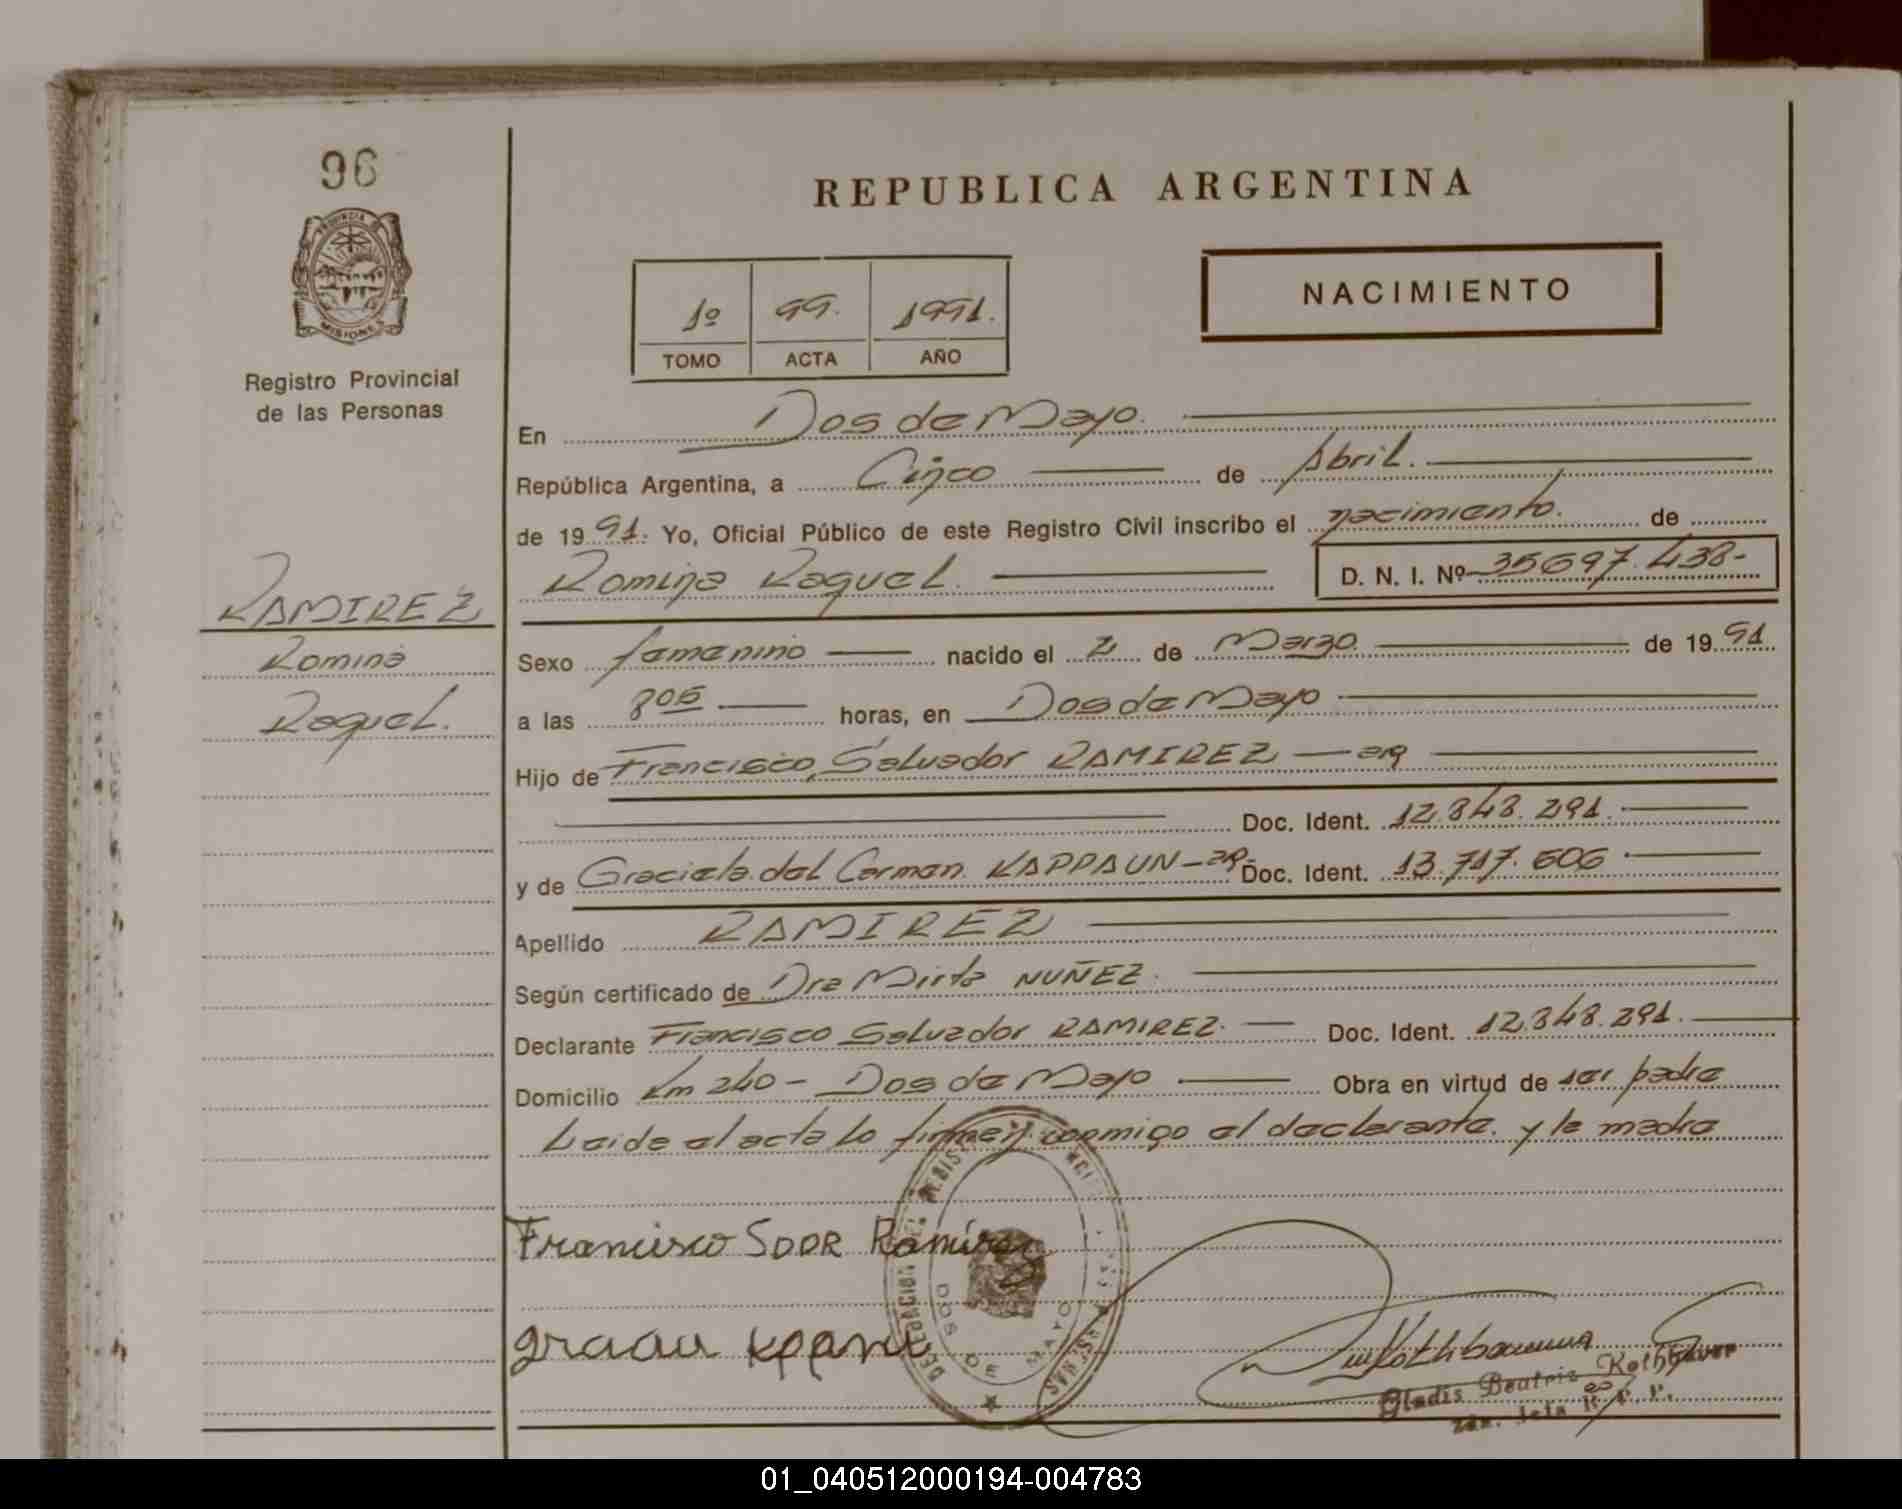 96
PROVINCIA DE
MISIONES
Registro Provincial
de las Personas
RAMIREZ
Romina
Raquel.
REPUBLICA ARGENTINA
NACIMIENTO
1º 99. 1991.
TOMO ACTA AÑO
En Dos de Mayo.
República Argentina, a Cinco de Abril.
de 1991. Yo, Oficial Público de este Registro Civil inscribo el nacimiento. de
Romina Raquel. D. N. I. Nº 35697.438-
Sexo femenino nacido el 2 de Marzo de 1991.
a las 8 05 horas, en Dos de Mayo
Hijo de Francisco Salvador RAMIREZ — arg
Doc. Ident. 12.848.291.
y de Graciela del Carmen KAPPAUN - arg. Doc. Ident. 13.717.606
Apellido RAMIREZ
Según certificado de Dra Mirta NUÑEZ.
Declarante Francisco Salvador RAMIREZ. Doc. Ident. 12.848.291.
Domicilio Km 240 - Dos de Mayo Obra en virtud de ser padre
Leida el acta lo firman conmigo el declarante y la madre
Francisco SDOR Ramírez
DELEGACION DEL
DOS DE MAYO
Gladis Beatriz Rothbauer
01_040512000194-004783